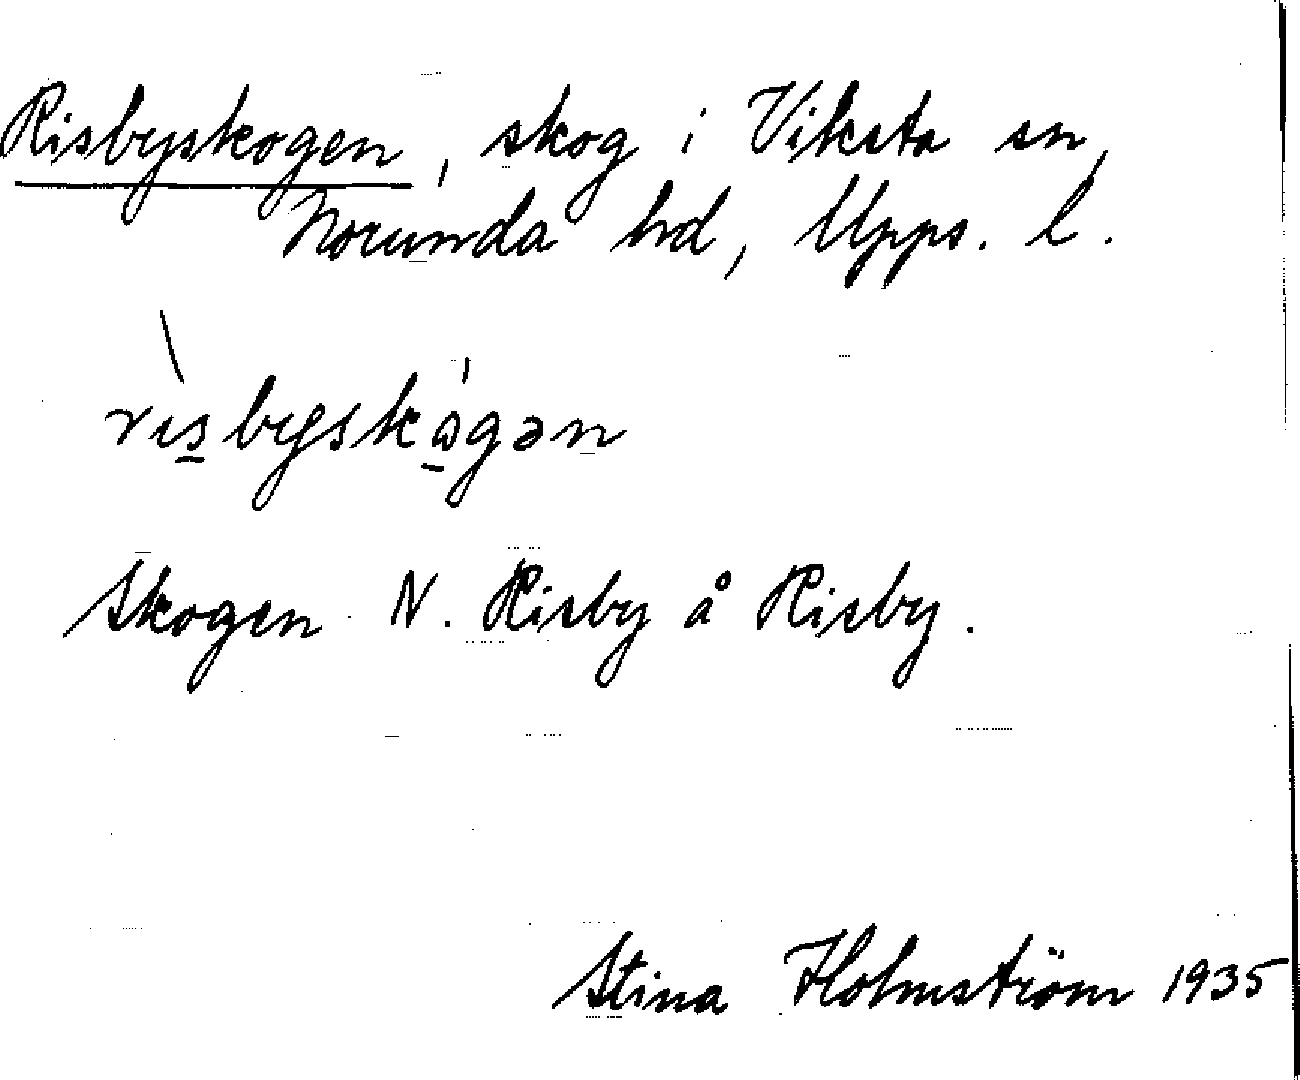 Risbyskogen, skog i Viksta sn,
Norunda hd, Upps. l.
rɩ̀s̲bygskɷ̲́gən
Skogen N. Risby å Risby.
Stina Holmström 1935